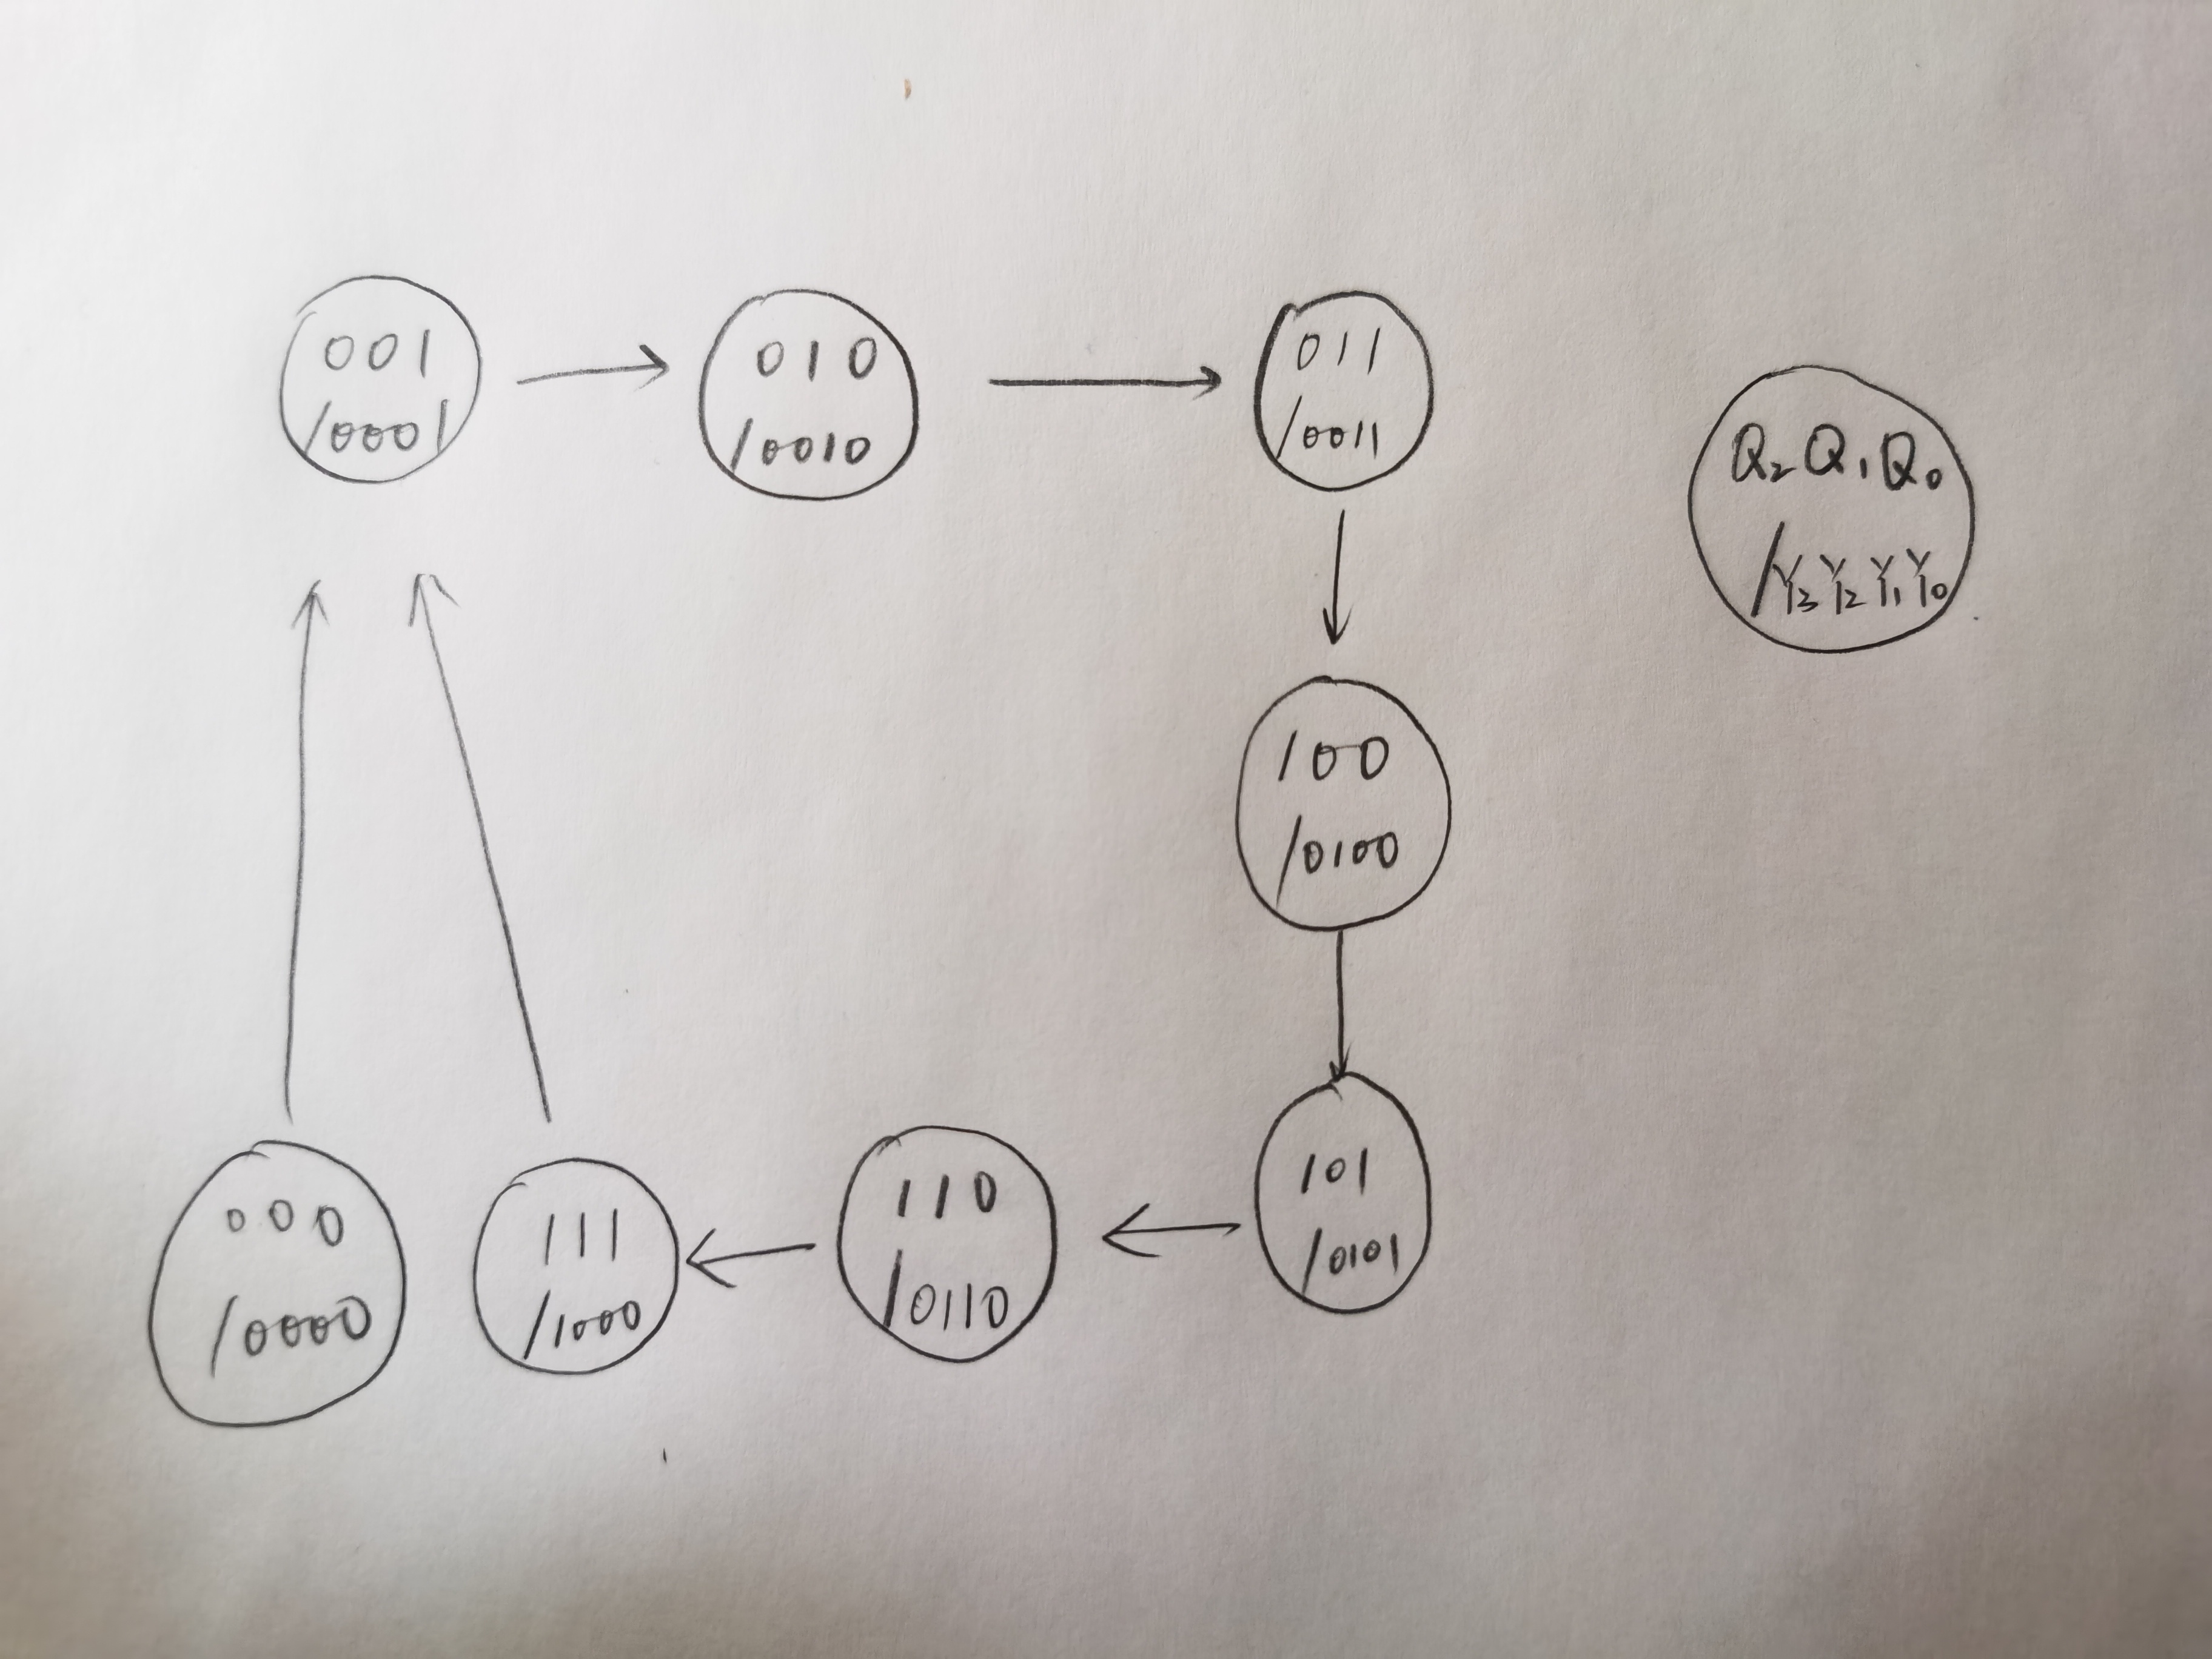 001
/0001
010
/0010
011
/0011
Q₂Q₁Q₀
/Y₃Y₂Y₁Y₀
100
/0100
101
/0101
110
/0110
111
/1000
000
/0000